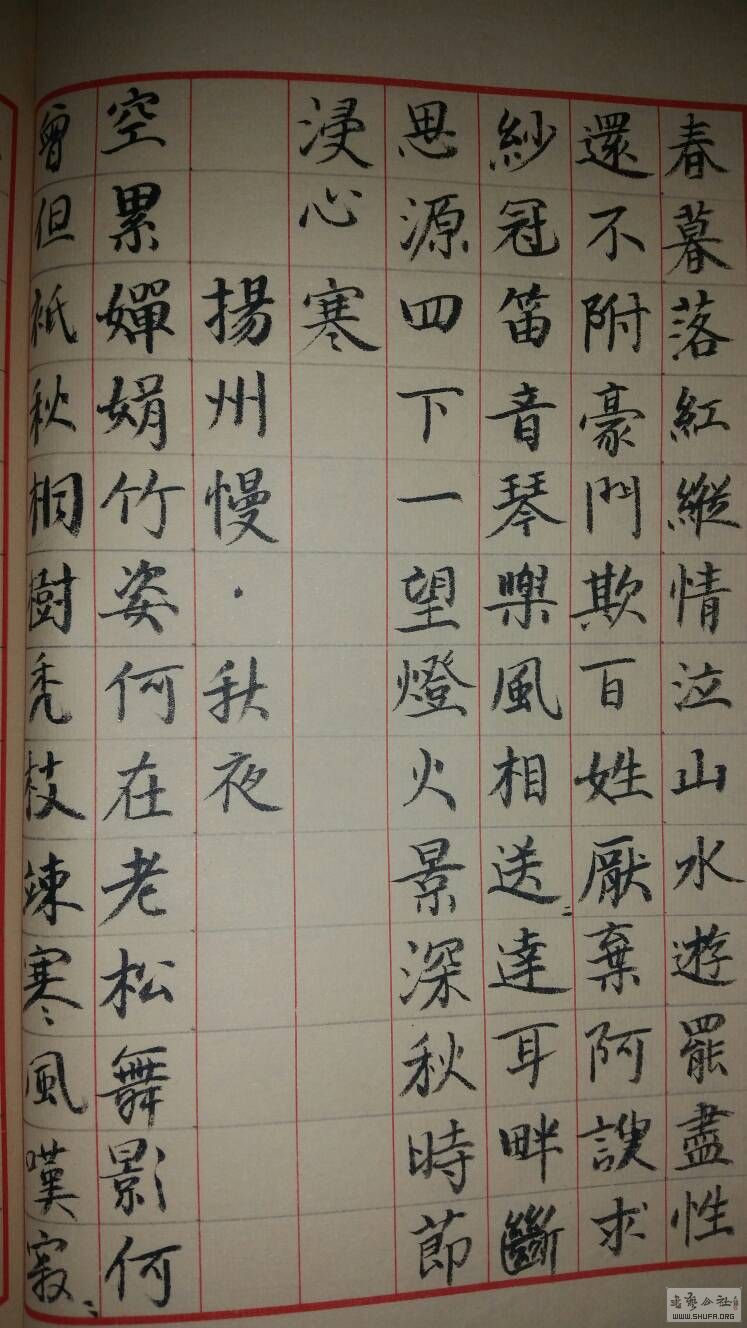 春暮落紅縱情泣山水遊罷盡性
還不附豪門欺百姓厭棄阿諛求
紗冠笛音琴樂風相送〻達耳畔斷
思源四下一望燈火景深秋時節
浸心寒
揚州慢·秋夜
空累嬋娟竹姿何在老松舞影何
曾但祇秋桐樹禿枝竦寒〻風嘆寂〻
WWW.SHUFA.ORG